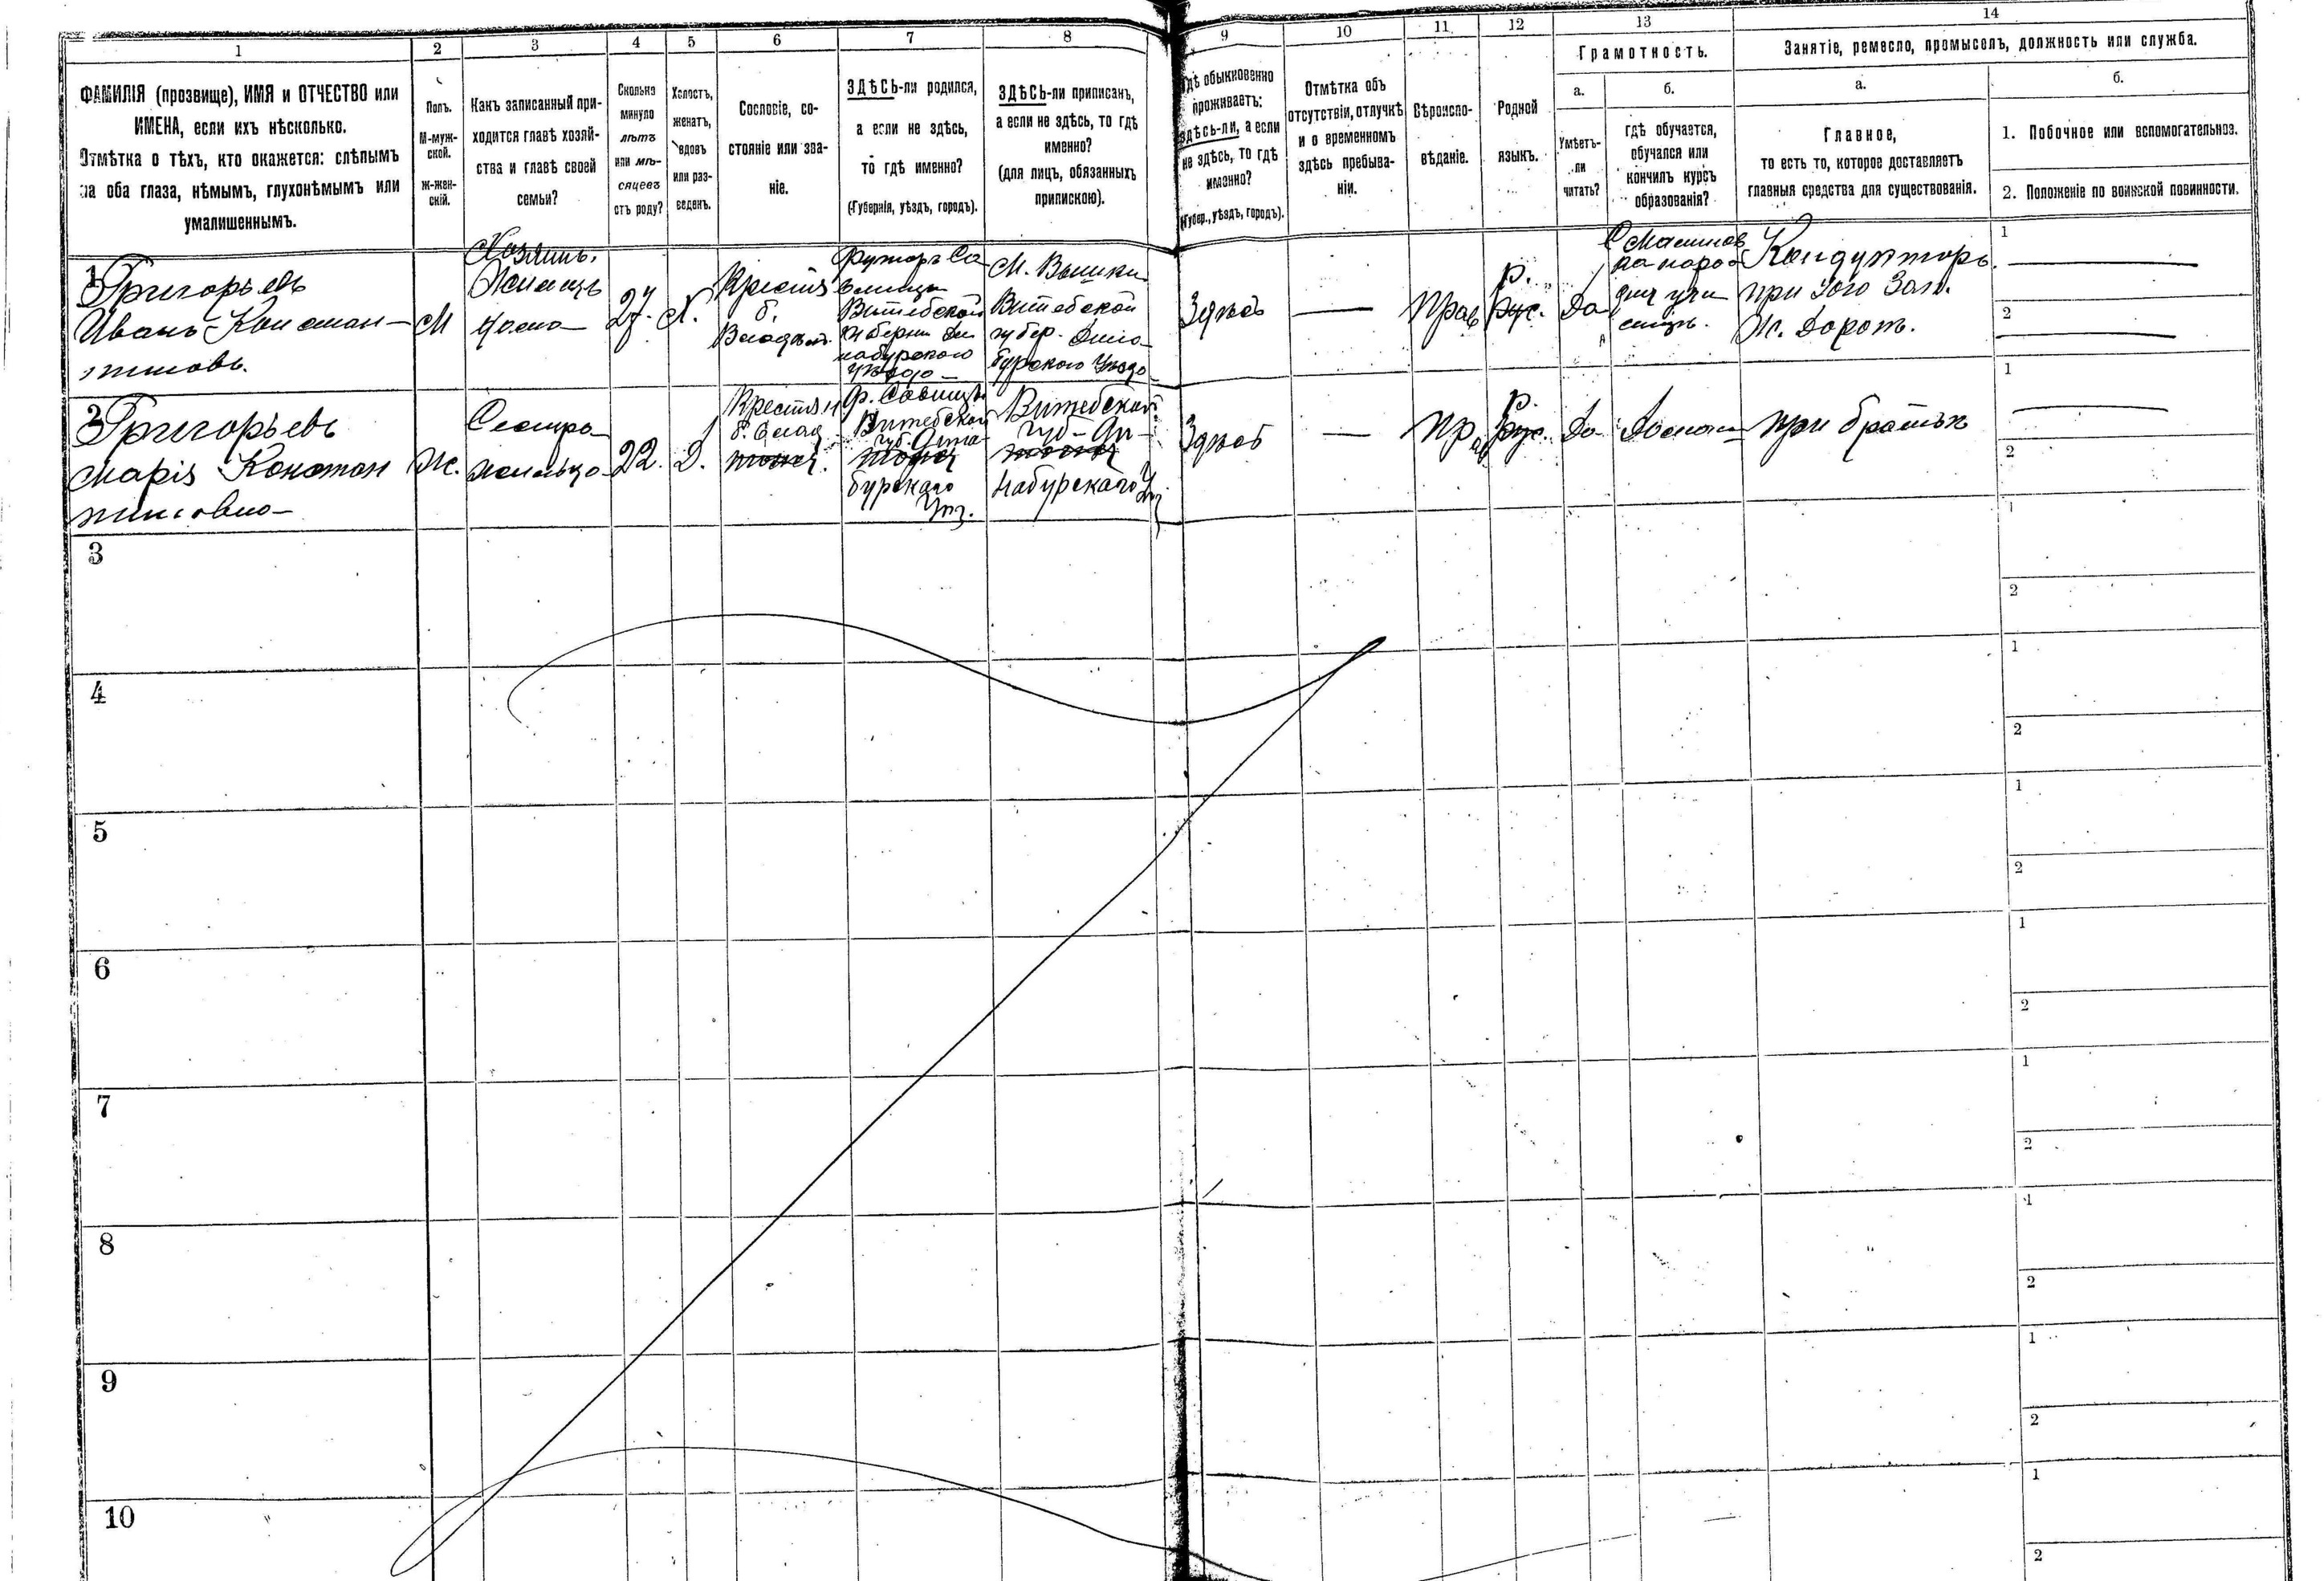 1
2
3
4
5
6
7
8
9
10
11
12
13
14
ФАМИЛІЯ (прозвище), ИМЯ и ОТЧЕСТВО или
ИМЕНА, если ихъ нѣсколько.
Отмѣтка о тѣхъ, кто окажется: слѣпымъ
на оба глаза, нѣмымъ, глухонѣмымъ или
умалишеннымъ.
Полъ.
М-муж-
ской.
Ж-жен-
скій.
Какъ записанный при-
ходится главѣ хозяй-
ства и главѣ своей
семьи?
Сколько
минуло
лѣтъ
или мѣ-
сяцевъ
отъ роду?
Холостъ,
женатъ,
вдовъ
или раз-
веденъ.
Сословіе, со-
стояніе или зва-
ніе.
ЗДѢСЬ-ли родился,
а если не здѣсь,
то гдѣ именно?
(Губернія, уѣздъ, городъ).
ЗДѢСЬ-ли приписанъ,
а если не здѣсь, то гдѣ
именно?
(для лицъ, обязанныхъ
припискою).
Гдѣ обыкновенно
проживаетъ:
здѣсь-ли, а если
не здѣсь, то гдѣ
именно?
(Губер., уѣздъ, городъ).
Отмѣтка объ
отсутствіи, отлучкѣ
и о временномъ
здѣсь пребыва-
ніи.
Вѣроиспо-
вѣданіе.
Родной
языкъ.
Грамотность.
а.
Умѣетъ-
ли
читать?
б.
гдѣ обучается,
обучался или
кончилъ курсъ
образованія?
Занятіе, ремесло, промыселъ, должность или служба.
а.
Главное,
то есть то, которое доставляетъ
главныя средства для существованія.
б.
1. Побочное или вспомогательное.
2. Положеніе по воинской повинности.
1
Григорьевъ
Иванъ Констан-
тиновъ.
М
Хозяинъ.
Жилецъ
27.
Х.
Крестя
б.
Владѣл.
Футоръ Са
Витебской
М. Вышки
Витебской
губер. Дина
бургского Уѣзда
Здѣсь
—
Прав
р.
Рус.
Да
на народ
Кондукторъ
при Юго Зап.
Ж. Дорогѣ.
1
2
2
Григорьевъ
Марія Констан
тиновна
Ж.
Сестра
жильца
22.
Д.
Крестян
б. Влад
тоже
Витебской
губ. Дина-
тоже
бургскаго
Уѣз.
Витебской
Губ- Ди-
тоже
набургскаго Уѣз
Здѣсь
—
Пр ав
р.
Рус.
Да
Дома
При братѣ
1
2
3
1
2
4
1
2
5
1
2
6
1
2
7
1
2
8
1
2
9
1
2
10
1
2